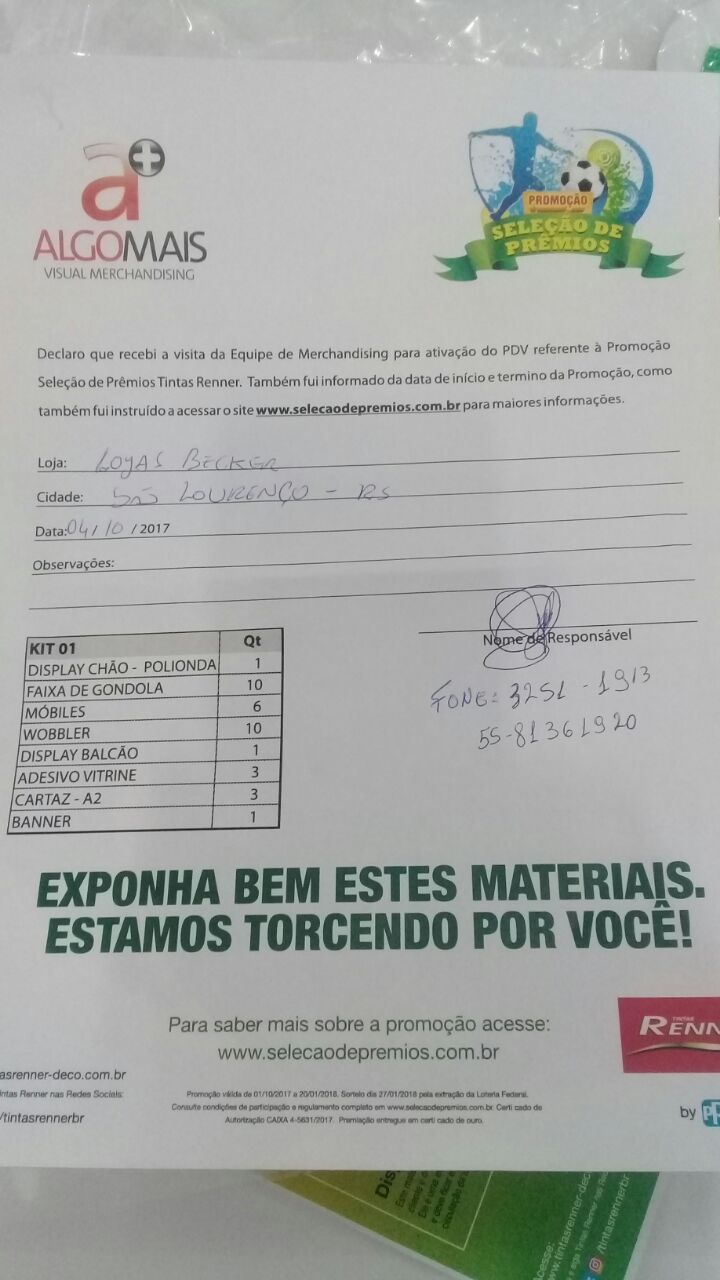 a+
ALGOMAIS
VISUAL MERCHANDISING
PROMOÇÃO
SELEÇÃO DE
PRÊMIOS
Declaro que recebi a visita da Equipe de Merchandising para ativação do PDV referente à Promoção
Seleção de Prêmios Tintas Renner. Também fui informado da data de início e termino da Promoção, como
também fui instruído a acessar o site www.selecaodepremios.com.br para maiores informações.
Loja: LOJAS BECKER
Cidade: SÃO LOURENÇO - RS
Data: 04/10/2017
Observações:
Nome de Responsável
FONE: 3251-1913
55-81361920
KIT 01 Qt
DISPLAY CHÃO - POLIONDA 1
FAIXA DE GONDOLA 10
MÓBILES 6
WOBBLER 10
DISPLAY BALCÃO 1
ADESIVO VITRINE 3
CARTAZ - A2 3
BANNER 1
EXPONHA BEM ESTES MATERIAIS.
ESTAMOS TORCENDO POR VOCÊ!
Para saber mais sobre a promoção acesse:
www.selecaodepremios.com.br
TINTAS
RENN
asrenner-deco.com.br
ntas Renner nas Redes Sociais:
/tintasrennerbr
Promoção válida de 01/10/2017 a 20/01/2018. Sorteio dia 27/01/2018 pela extração da Loteria Federal.
Consulte condições de participação e regulamento completo em www.selecaodepremios.com.br. Certi cado de
Autorização CAIXA 4-5631/2017. Premiação entregue em certi cado de ouro.
by PP
Dis
Este mat
www.tintasrenner-deco.
/tintasrennerbr